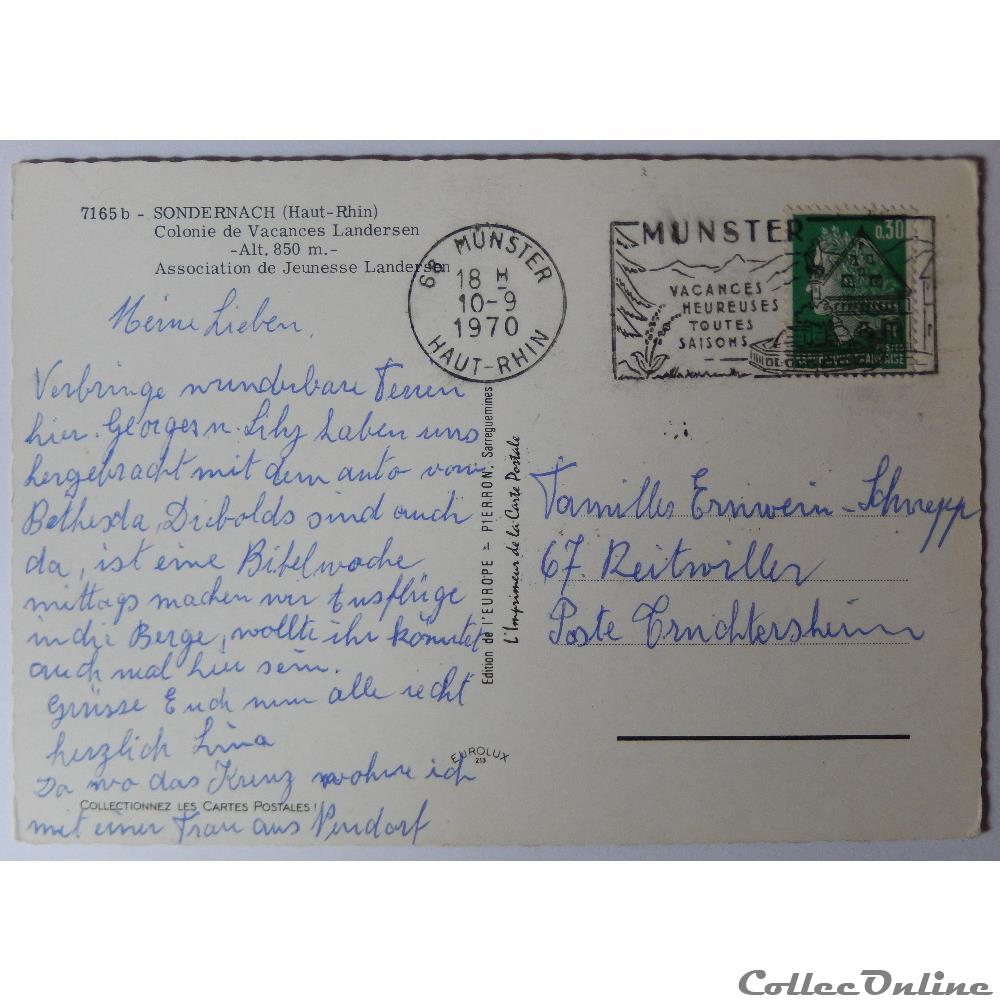 7165 b - SONDERNACH (Haut-Rhin)
Colonie de Vacances Landersen
-Alt. 850 m.-
Association de Jeunesse Landersen
Meine Lieben,
Verbringe wunderbare Ferien
hier. Georges u. Lily haben uns
hergebracht mit dem auto vom
Bethesda, Diebolds sind auch
da, ist eine Bibelwoche
mittags machen wir Ausflüge
in die Berge, wollte ihr könntet
auch mal hier sein.
Grüsse Euch nun alle recht
herzlich Lina
Da wo das Kreuz wohne ich
COLLECTIONNEZ LES CARTES POSTALES !
mit einer Frau aus
Edition de l'EUROPE - PIERRON, Sarreguemines
L'Imprimeur de la Carte Postale
EUROLUX
213
68 MUNSTER
18 H
10-9
1970
HAUT-RHIN
MUNSTER
VACANCES
HEUREUSES
TOUTES
SAISONS
0,30
Familles Ernwein-Schnepp
67. Reitwiller
Poste Truchtersheim
CollecOnline